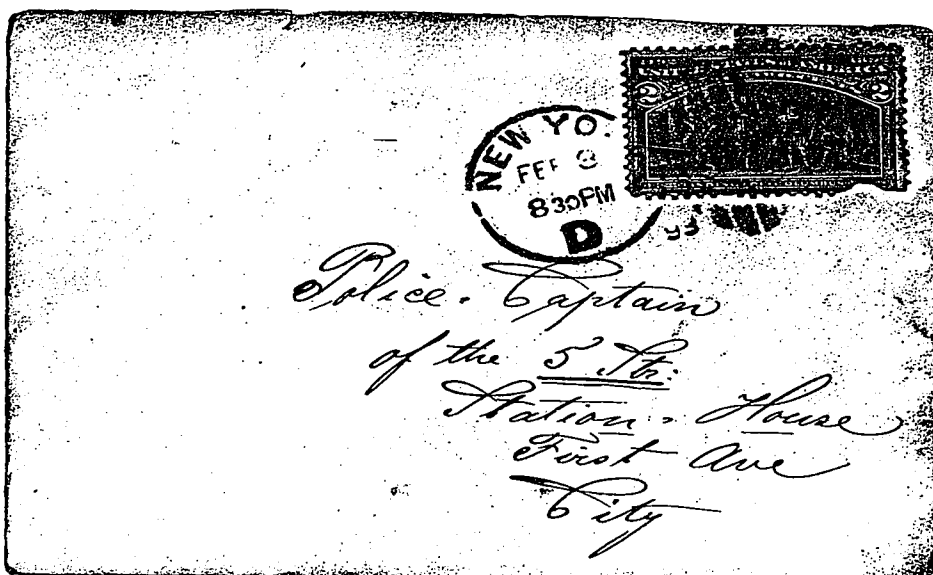 NEW YO.
FEB 3
8 30 PM
D
93
2 2
Police. Captain
of the 5 Str:
Station. House
First Ave
City